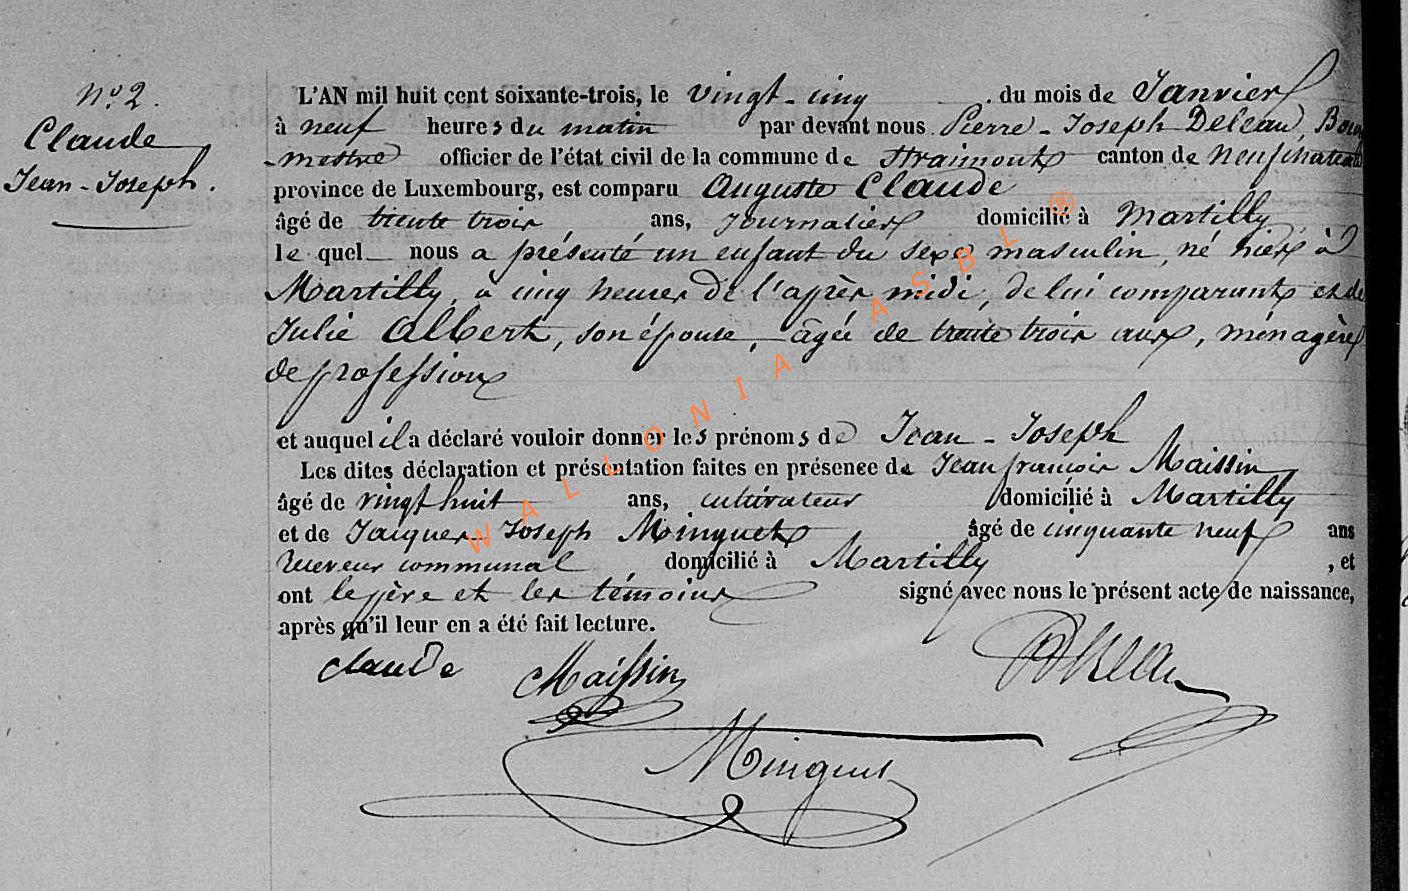 N° 2.
Claude
Jean-Joseph.
L'AN mil huit cent soixante-trois, le vingt-cinq du mois de Janvier
à neuf heures du matin par devant nous Pierre-Joseph Deleau, Bourg
-mestre officier de l'état civil de la commune de Straimont canton de Neufchateau
province de Luxembourg, est comparu Auguste Claude
âgé de trente trois, ans, Journalier domicilié à Martilly,
le quel nous a présenté un enfant du sexe masculin, né hier à
Martilly, à cinq heures de l'après midi, de lui comparant et de
Julie Albert, son épouse, âgée de trente trois ans, ménagère
de profession
et auquel il a déclaré vouloir donner les prénoms de Jean-Joseph
Les dites déclaration et présentation faites en présence de Jean françois Maissin
âgé de vingt huit ans, cultivateur domicilié à Martilly
et de Jacques Joseph Minguet âgé de cinquante neuf ans
receveur communal domicilié à Martilly , et
ont le père et les témoins signé avec nous le présent acte de naissance,
après qu'il leur en a été fait lecture.
Claude Maissin Deleau
Minguet
WALLONIA ASBL ®